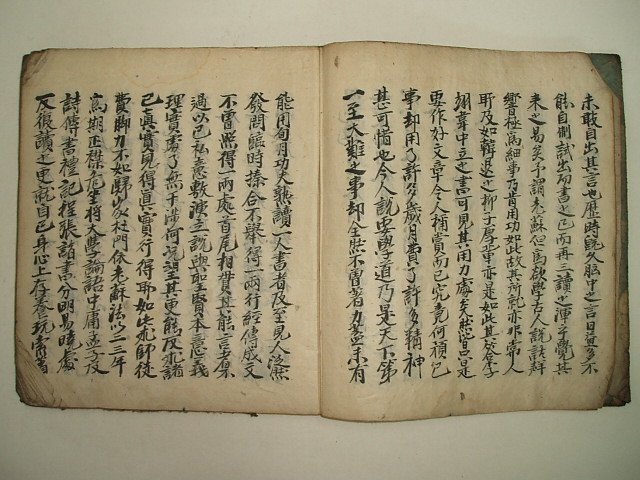 未敢自出其言也歷時既久胸中之言日益多不
能自制試出而書之已而再三讀之渾々乎覺其
来之易矣予謂老蘇但為欲學古人說話聲
響極為細事乃肯用功如此故其所就亦非常人
所及如韓退之柳子厚輩亦是如此其答李子
翊韋中立之書可見其用力處矣然皆只是
要作好文章令人稱賞而已究竟何預己
事却用了許多歲月費了許多精神
甚可惜也今人說要學道乃是天下第
一至大難之事却全然不曾著力蓋未有
能用旬月功夫熟讀一人書者及至見人泛然
發問臨時揍合不舉得一兩行經傳成文
不曾照得一兩處首尾相貫其能言者不
過以己私意敷演立說與聖賢本意義
理實處了無干涉何況望其更能反求諸
己真實見得真實行得耶如此求師徒
費脚力不如歸家杜門依老蘇法以二三年
為期正襟危坐將大學論語中庸孟子及
詩傳書禮記程張諸書分明易曉處
反復讀之更就自己身心上存養玩索著